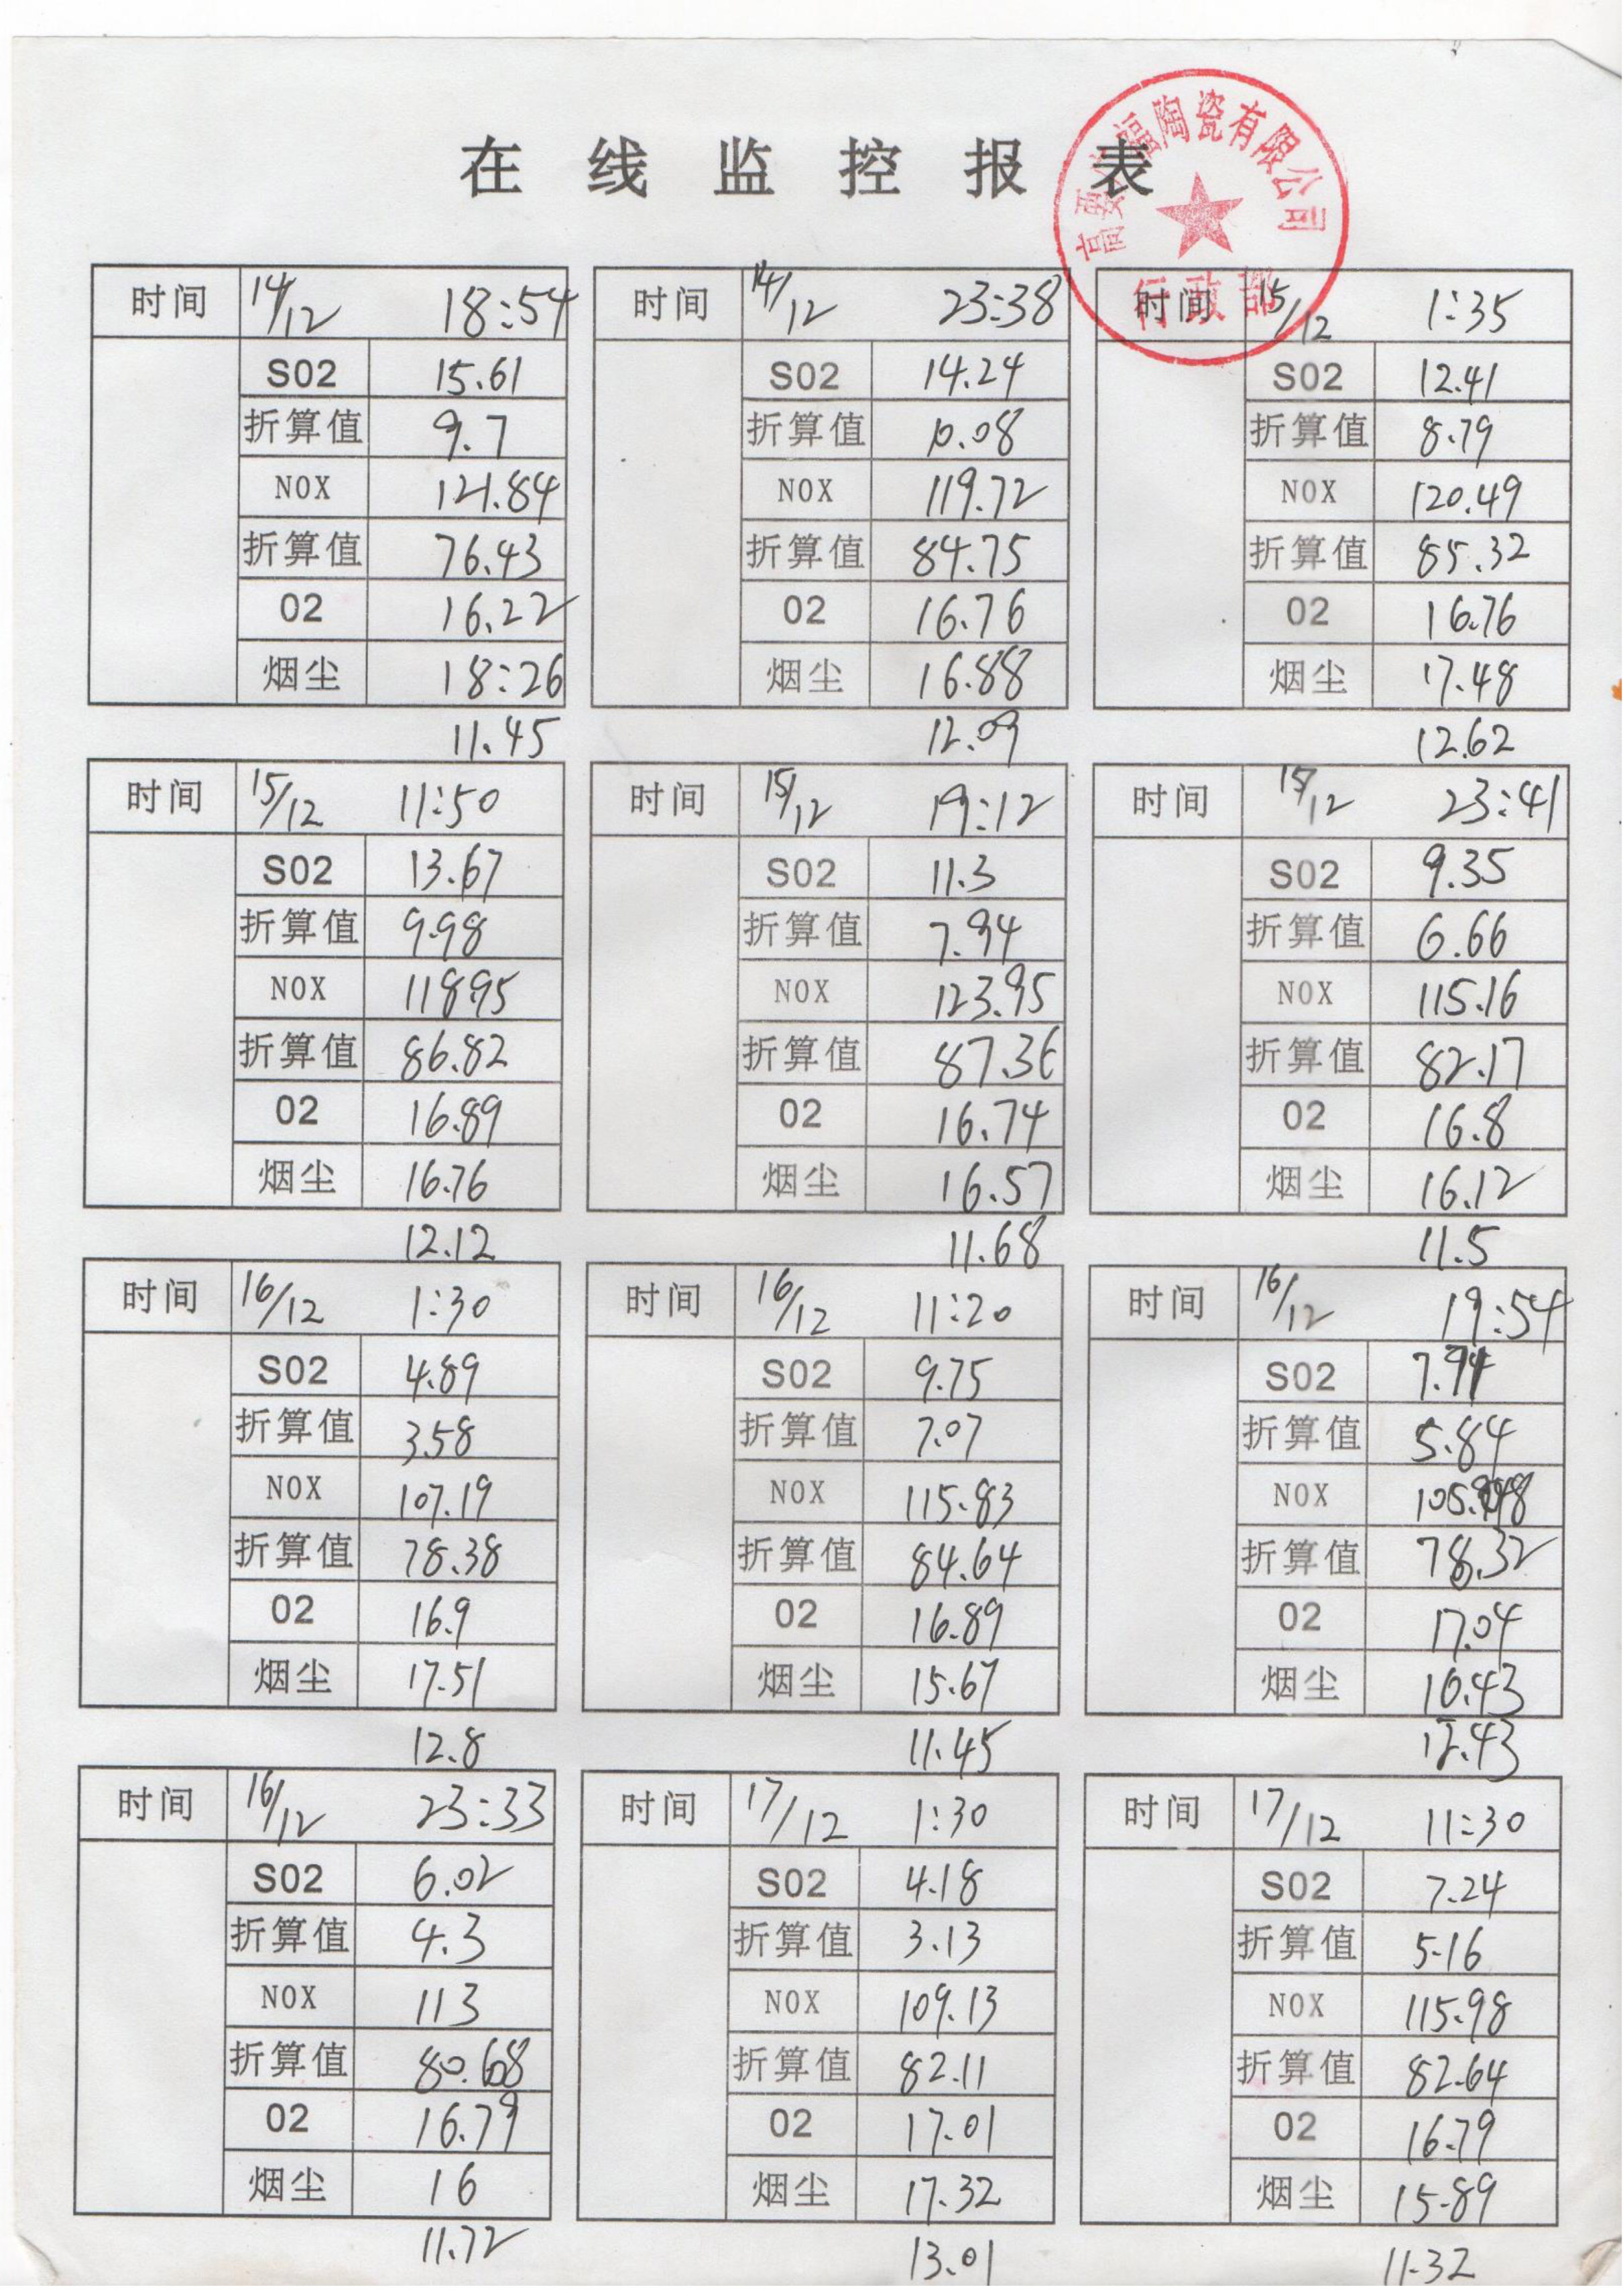 在线监控报表
福陶瓷有限公司
行政部
时间 14/12 18:54
SO2 15.61
折算值 9.7
NOX 121.84
折算值 76.43
O2 16.22
烟尘 18:26
11.45
时间 14/12 23:38
SO2 14.24
折算值 10.08
NOX 119.72
折算值 84.75
O2 16.76
烟尘 16.88
12.09
时间 15/12 1:35
SO2 12.41
折算值 8.79
NOX 120.49
折算值 85.32
O2 16.76
烟尘 17.48
12.62
时间 15/12 11:50
SO2 13.67
折算值 9.98
NOX 118.95
折算值 86.82
O2 16.89
烟尘 16.76
12.12
时间 15/12 19:12
SO2 11.3
折算值 7.94
NOX 123.95
折算值 87.36
O2 16.74
烟尘 16.57
11.68
时间 15/12 23:41
SO2 9.35
折算值 6.66
NOX 115.16
折算值 82.17
O2 16.8
烟尘 16.12
11.5
时间 16/12 1:30
SO2 4.89
折算值 3.58
NOX 107.19
折算值 78.38
O2 16.9
烟尘 17.51
12.8
时间 16/12 11:20
SO2 9.75
折算值 7.07
NOX 115.83
折算值 84.64
O2 16.89
烟尘 15.67
11.45
时间 16/12 19:54
SO2 7.94
折算值 5.84
NOX
折算值 78.32
O2 17.04
烟尘 16.43
12.43
时间 16/12 23:33
SO2 6.02
折算值 4.3
NOX 113
折算值 80.68
O2 16.79
烟尘 16
11.72
时间 17/12 1:30
SO2 4.18
折算值 3.13
NOX 109.13
折算值 82.11
O2 17.01
烟尘 17.32
13.01
时间 17/12 11:30
SO2 7.24
折算值 5.16
NOX 115.98
折算值 82.64
O2 16.79
烟尘 15.89
11.32